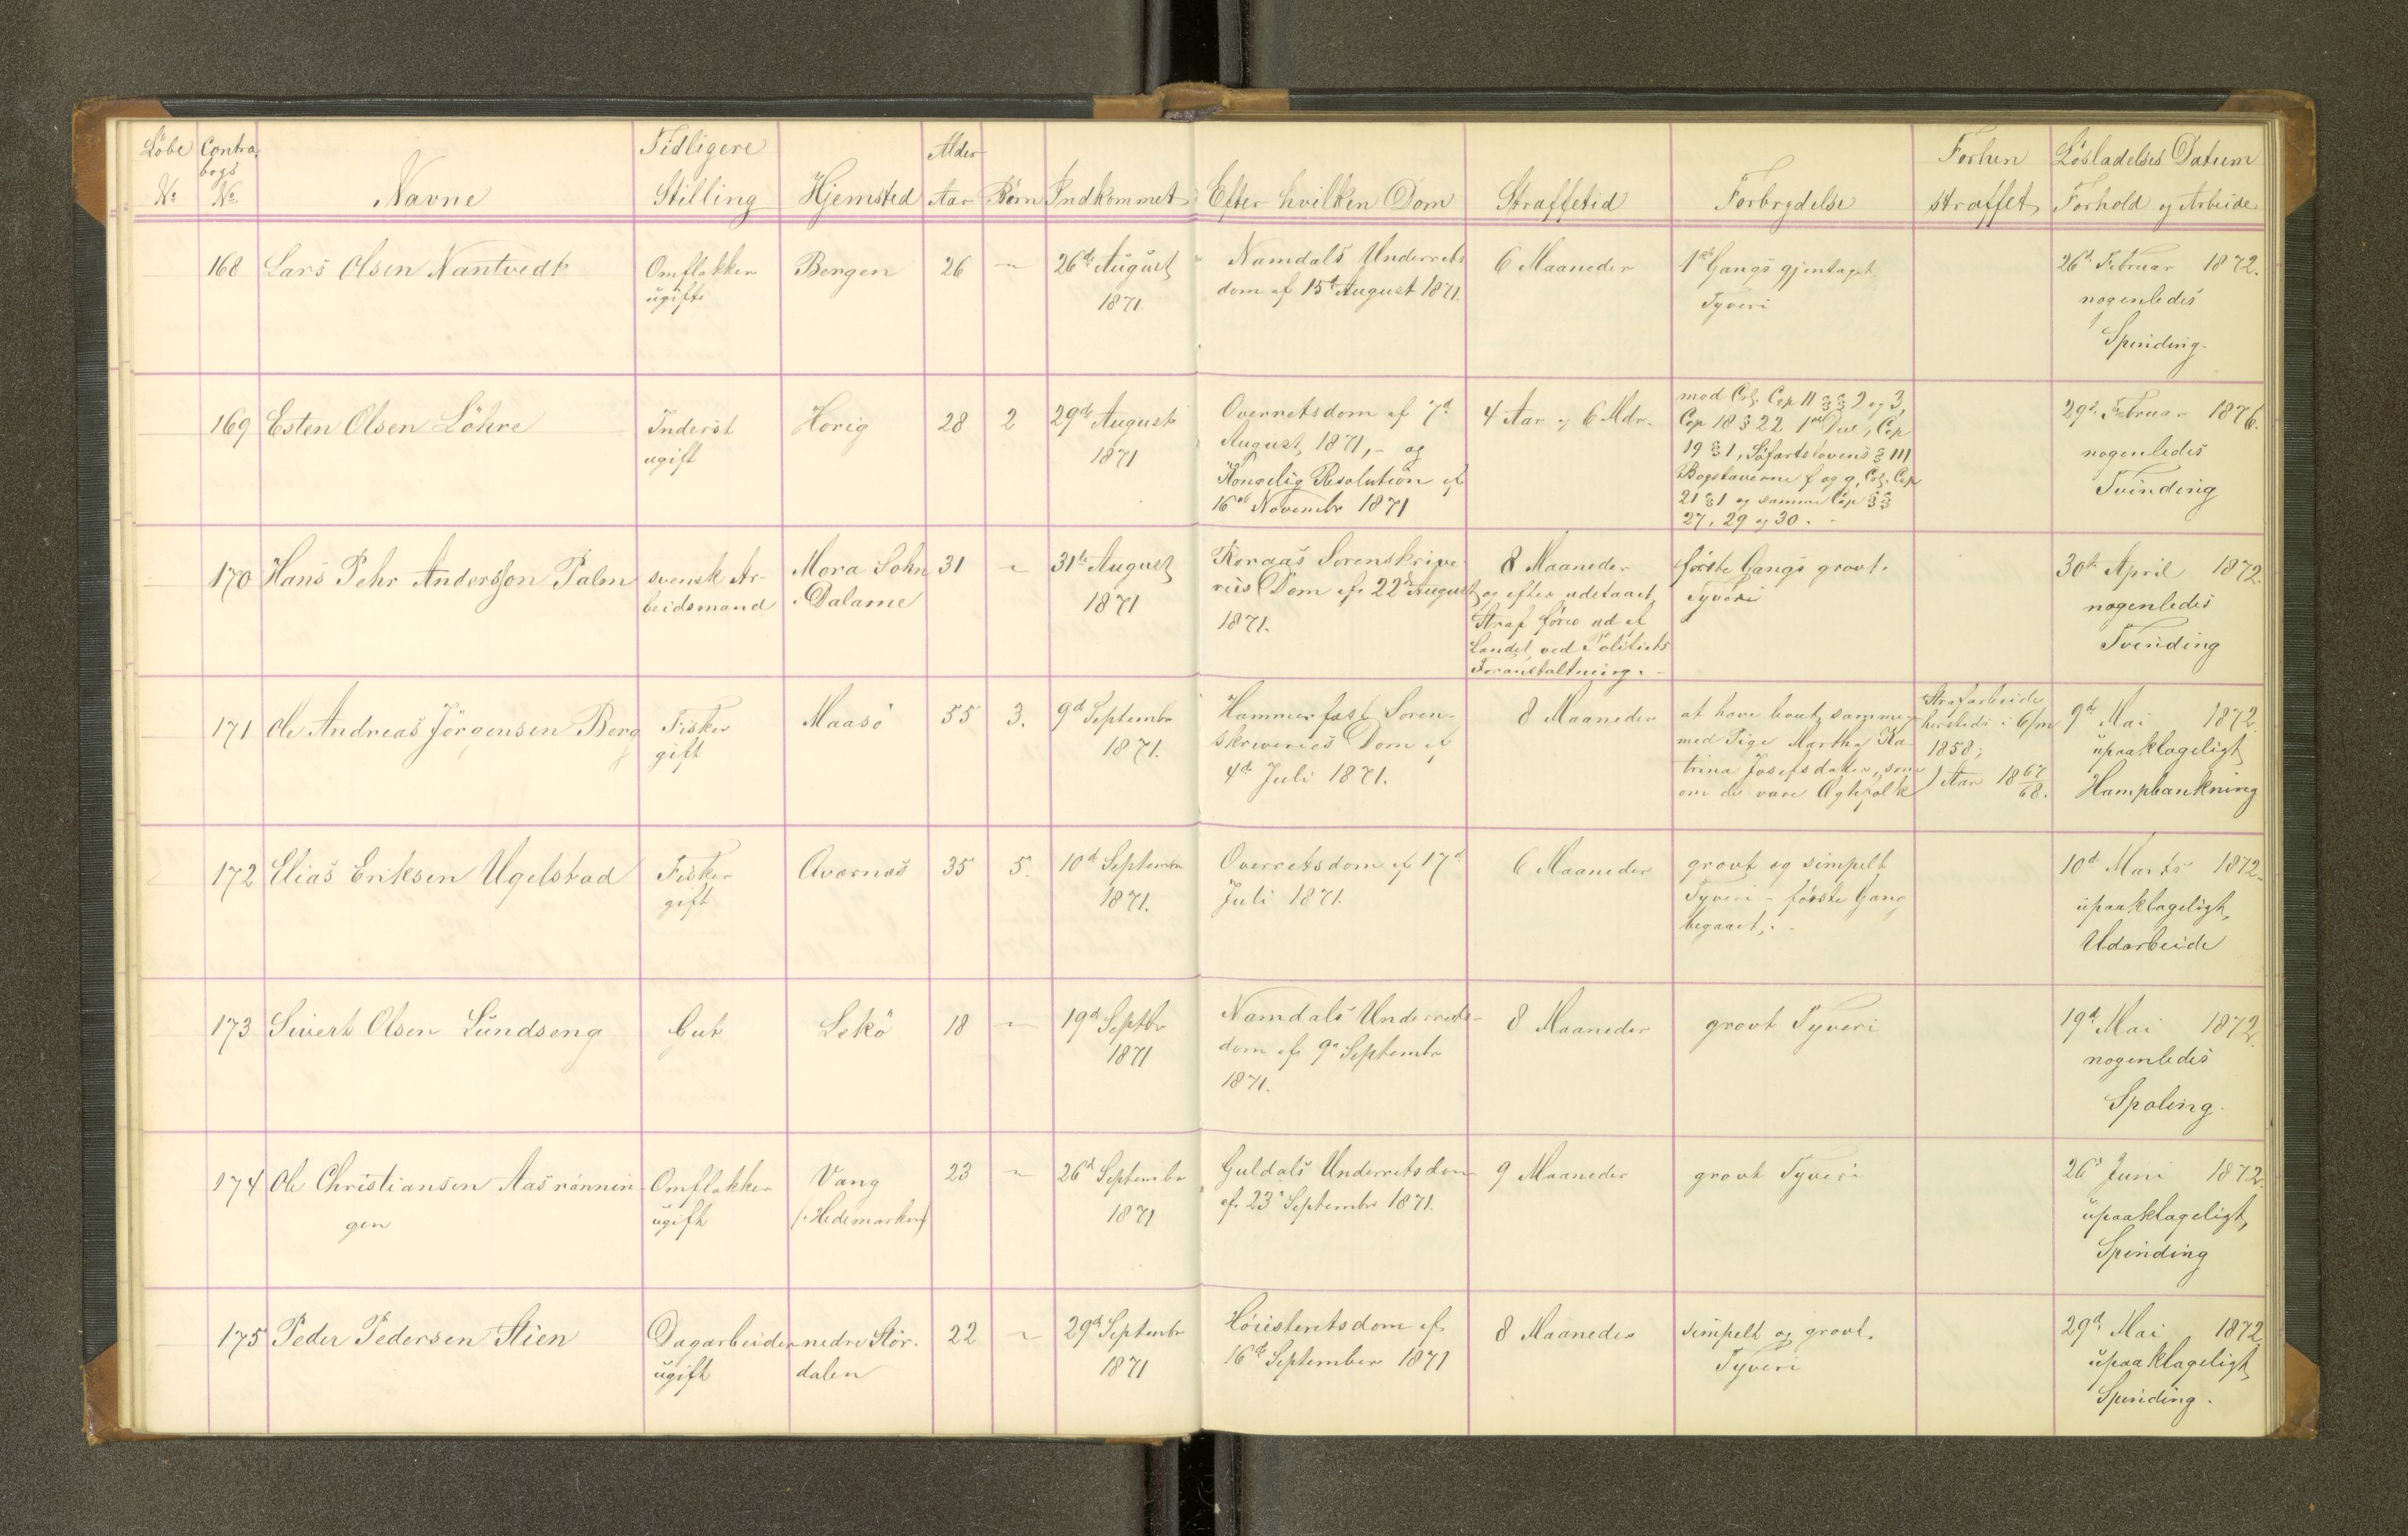 Löbe No
Contra bogs No
Navne
Tidligere Stilling
Hjemsted
Alder Aar
Börn
Indkommet
Efter hvilken Dom
Straffetid
Forbrydelse
Forhen straffet
Lösladelses Datum Forhold og Arbeide
168 Lars Olsen Nantvedt
Omflakker
ugift
Bergen
26
"
26de August
1871.
Namdals Underrets
dom af 15de August 1871.
6 Maaneder
1ste Gangs gjentaget
Tyveri
26de Februar 1872.
nogenledes
Spinding.
169 Esten Olsen Löhre
Inderst
ugift
Horig
28
2
29de August
1871
Overretsdom af 7de
August 1871, - og
Kongelig Resolution af
16de Novembr 1871
4 Aar og 6 Mdr.
mod Crl. Cap 11 §§ 2 og 3,
Cap 18 § 22 1ste Del, Cap
19 § 1, Söfartslovens § 111
Bogstaverne f og g, Crl. Cap
21 § 1 og samme Cap §§
27, 29 og 30. -
29de Februar 1876.
nogenledes
Tvinding
170 Hans Pehr Andersson Palm
svensk Ar-
beidsmand
Mora Sohn
Dalarne
31
"
31te August
1871
Koraas Sorenskrive
ries Dom af 22de August
1871.
8 Maaneder
og efter udstaaet
Straf föres ud af
Landet ved Politiets
Foranstaltning. -
förste Gangs grovt.
Tyveri
30te April 1872.
nogenledes
Tvinding
171 Ole Andreas Jörgensen Berg
Fisker
gift
Maasö
55
3.
9de Septembr
1871.
Hammerfest Soren-
skriveries Dom af
4de Juli 1871.
8 Maaneder
at have levet sammen
med Pige Martha Ka-
trina Josefsdatter, som
om de vare Ægtefolk
Strafarbeide
hersteds i 6/m
1858;
1 Aar 1867/68.
9de Mai 1872.
upaaklageligt
Hampbankning
172 Elias Eriksen Ugelstad
Fisker
gift
Avernæs
35
5.
10de Septembr
1871.
Overretsdom af 17de
Juli 1871.
6 Maaneder
grovt og simpelt
Tyveri - förste Gang
begaaet. -
10de Marts 1872.
upaaklageligt,
Udarbeide
173 Sivert Olsen Lundseng
Gut
Lekö
18
"
19de Septbr
1871
Namdals Underrets-
dom af 9de Septembr
1871.
8 Maaneder
grovt Tyveri
19de Mai 1872.
nogenledes
Spoling.
174 Ole Christiansen Aasrönnin
gen
Omflakker
ugift
Vang
(Hedemarken)
23
"
26de Septembr
1871
Guldals Underretsdom
af 23de Septembr 1871.
9 Maaneder
grovt Tyveri
26de Juni 1872.
upaaklageligt,
Spinding
175 Peder Pedersen Stien
Dagarbeider
ugift
nedre Stör-
dalen
22
"
29de Septembr
1871
Höiesteretsdom af
16de September 1871
8 Maaneder
simpelt og grovt.
Tyveri
29de Mai 1872
upaaklageligt,
Spinding.